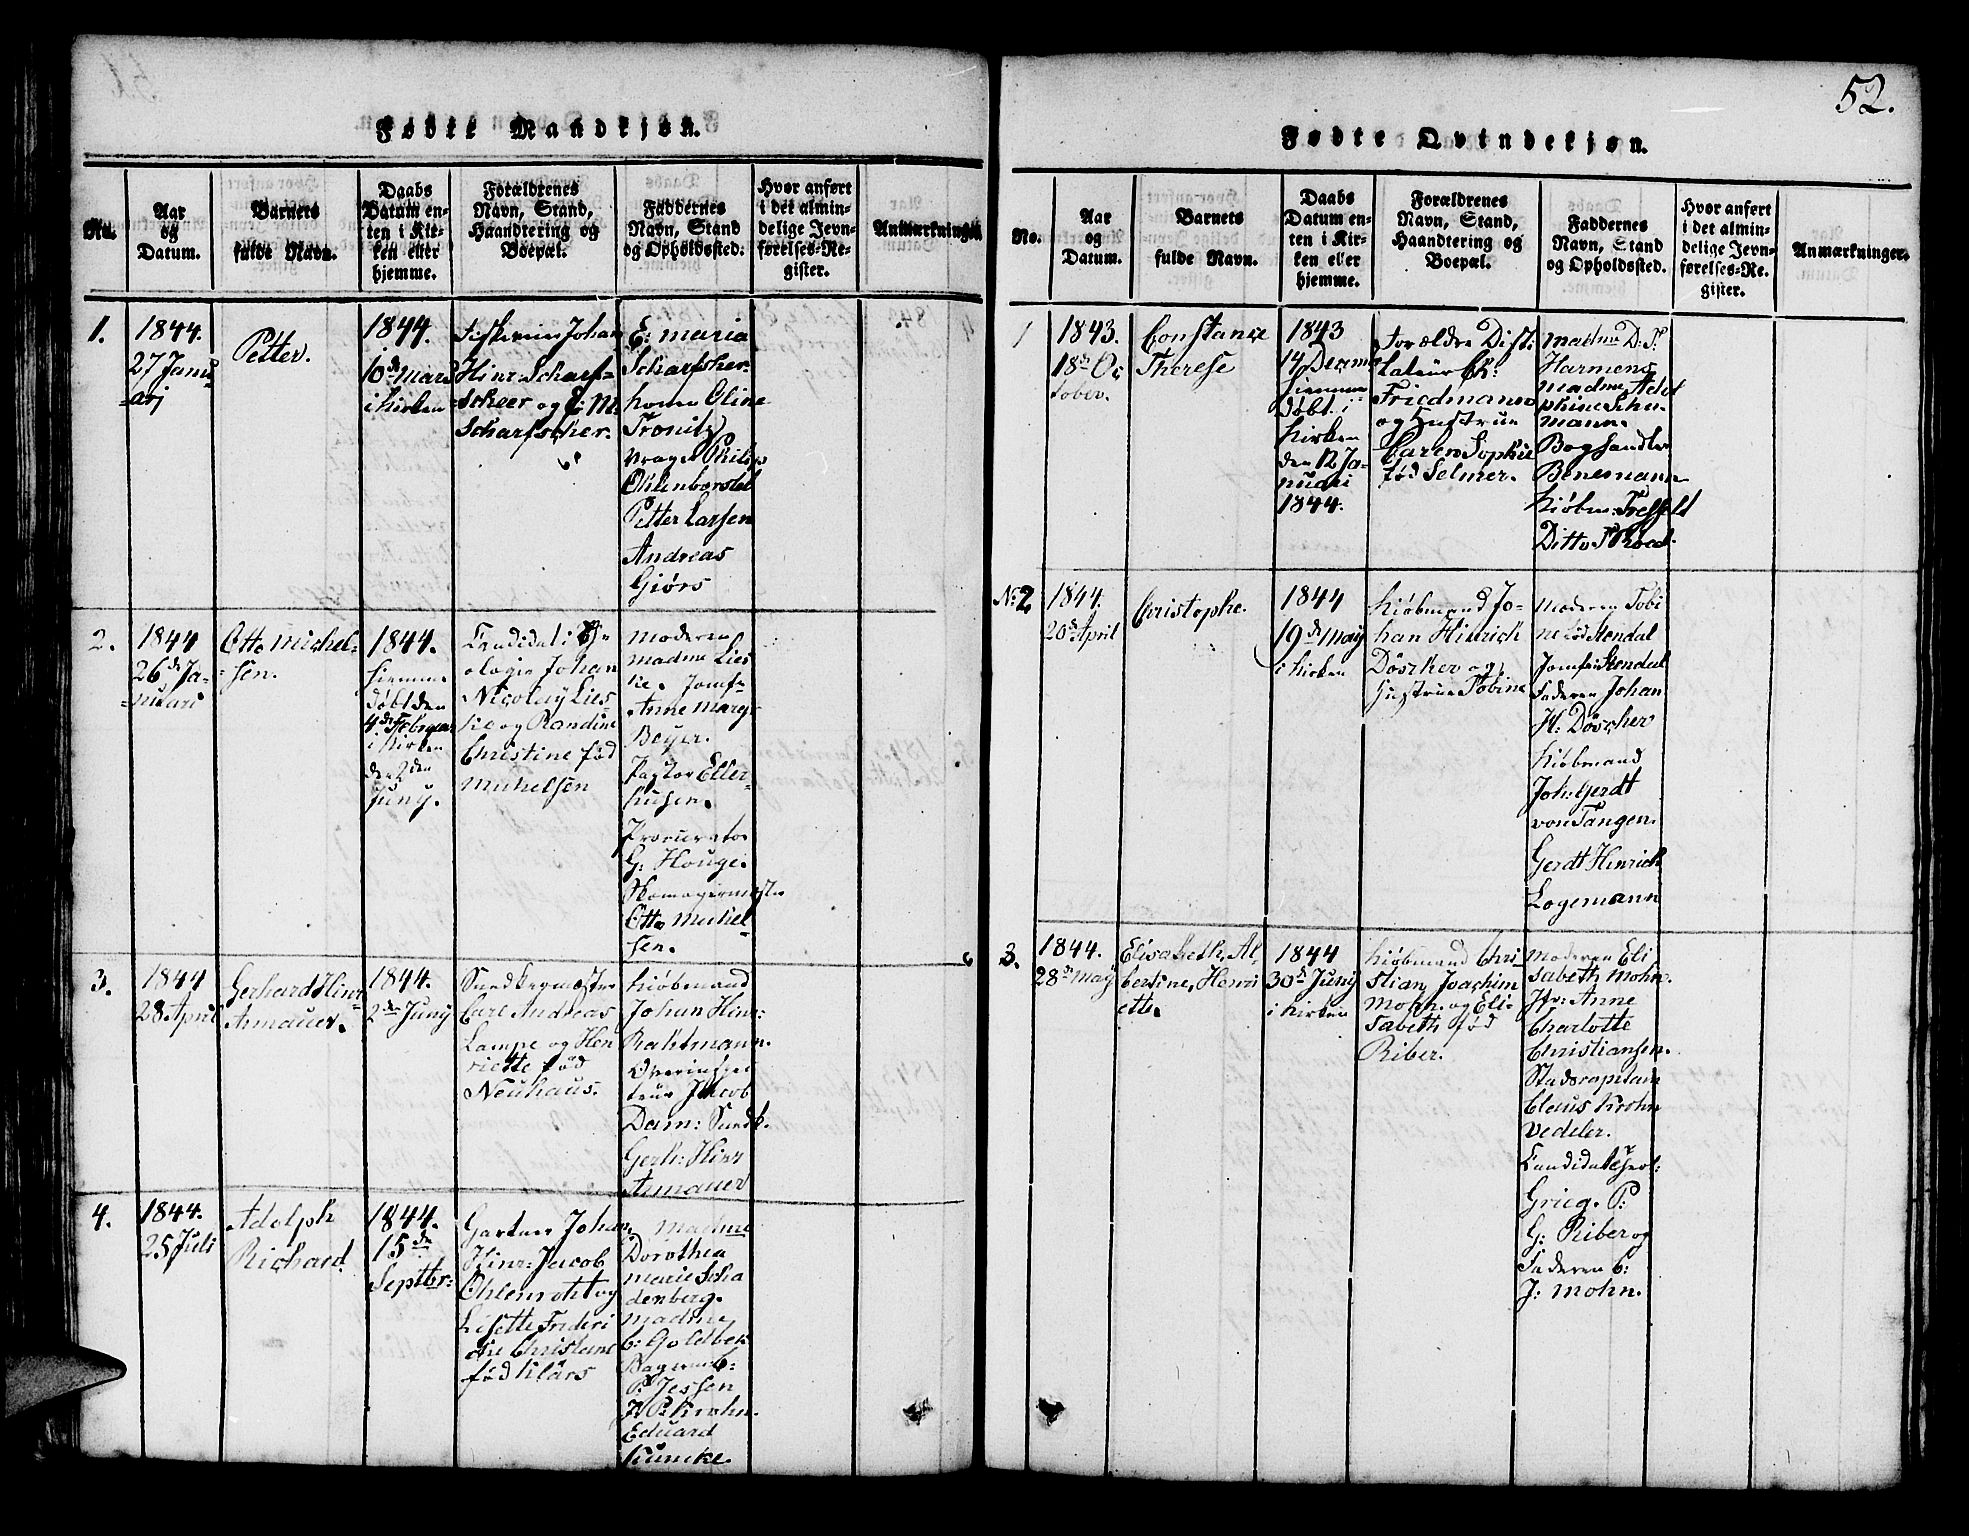 Fødte Mandkjøn.
No.
Aar
og
Datum.
Barnets
fulde Navn.
Daabs
Datum en-
ten i Kir-
ken eller
hjemme.
Forældrenes
Navn, Stand,
Haandtering og
Boepæl.
Faddernes
Navn, Stand
og Opholdssted.
Hvor anført
i det almin-
delige Jevn-
førelses-Re-
gister.
Anmærkninger.
1.
1844.
27 Janu
arj
Petter.
1844.
10de Mars
i Kirken
Johan
Hinr: Scharf=
scheer og
Scharfscher.
E: Maria
Scharfsker.
Oline
Tronitz
Philip
Ohlenborstel
Petter Larsen
Andreas
Giørs
2.
1844
26de Ja-
nuari
Otto Michel-
sen.
1844.
hiemme
døbt den
4de Febr
i Kirken
den 2den
Juny.
Candidat i The
ologie Johan
Nicolay Lies
ke og Randine
Christine fød
Michelsen
Moderen
Madme Lies
ke. Jomfr
Anne Margr
Beyer.
Pastor Eller-
husen.
Procurator
G: Houge.
Skomagermester
Otto Michel-
sen.
3.
1844
28 April
Gerhard Hinr
Armauer.
1844.
2de Juny
Carl Andreas
Lampe og Hen
riette fød
Neuhaus.
Kiøbmand
Johan Hinr:
Rahtmann.
Overinspec
teur Jacob
Dam:
Gerh: Hinr
Armauer
4.
1844.
25 Juli
Adolph
Richard.
1844.
15de
Septbr:
Gartner Johan
Hinr: Jacob
Ohlenroht og
Lisette Frideri
che Christiane
fød Klärs
Madme
Dorothea
Marie Scha
denberg.
Madme
C: Goldbek
P: Jessen
P: Krohn.
Eduard
Kuncke.
52.
Fødte Qvindekjøn.
No.
Aar
og
Datum.
Barnets
fulde Navn.
Daabs
Datum en-
ten i Kir-
ken eller
hjemme.
Forældrenes
Navn, Stand,
Haandtering og
Boepæl.
Faddernes
Navn, Stand
og Opholdssted.
Hvor anført
i det almin-
delige Jevn-
førelses-Re-
gister.
Anmærkninger.
1
1843.
18de Oc
tober.
Constance
Therese
1843
14 Decme
hiemme
døbt. i
Kirken
den 12 Ja-
nuari
1844.
Forældre Disti
lateur Ch:
Friedmaner
og Hustrue
Caren Sophie
fød Selmer.
Madme D. T.
Harmens
Madme Adol
phine Schu
mann.
Boghandler
Benesmann
Kiøbm: Tresfelt
Ditto
No 2
1844.
20de April
Christophe.
1844
19de May
i Kirken
Kiøbmand Jo-
han Hinrich
Döscher og
Hustrue Tobine
Moderen Tobi
ne fød Stendal
Jomfr: Stendal
Faderen Johan
H. Döscher
Kiøbmand
Joh: Gerdt
von Tangen.
Gerdt Hinrich
Logemann
3.
1844.
28de May
Elisabeth, Al-
bertine, Henri
ette.
1844
30de Juny
i Kirken
Kiøbmand Chri
stian Joachim
Mohn og Eli-
sabeth fød
Riber.
Moderen Eli
sabeth Mohn.
Jfr: Anne
Charlotte
Christiansen.
Stadscapitain
Claus Krohn
Vedeler.
Candidat
Grieg. P:
G: Riber og
Faderen C:
J: Mohn.